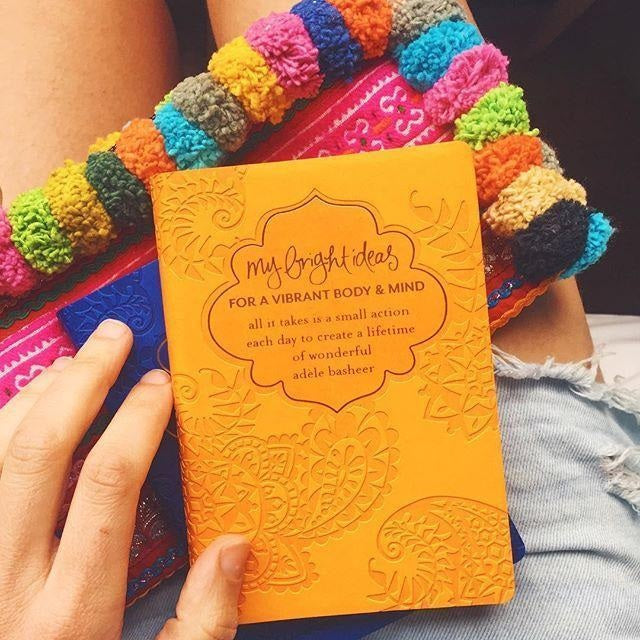 my bright ideas
FOR A VIBRANT BODY & MIND
all it takes is a small action
each day to create a lifetime
of wonderful
adèle basheer